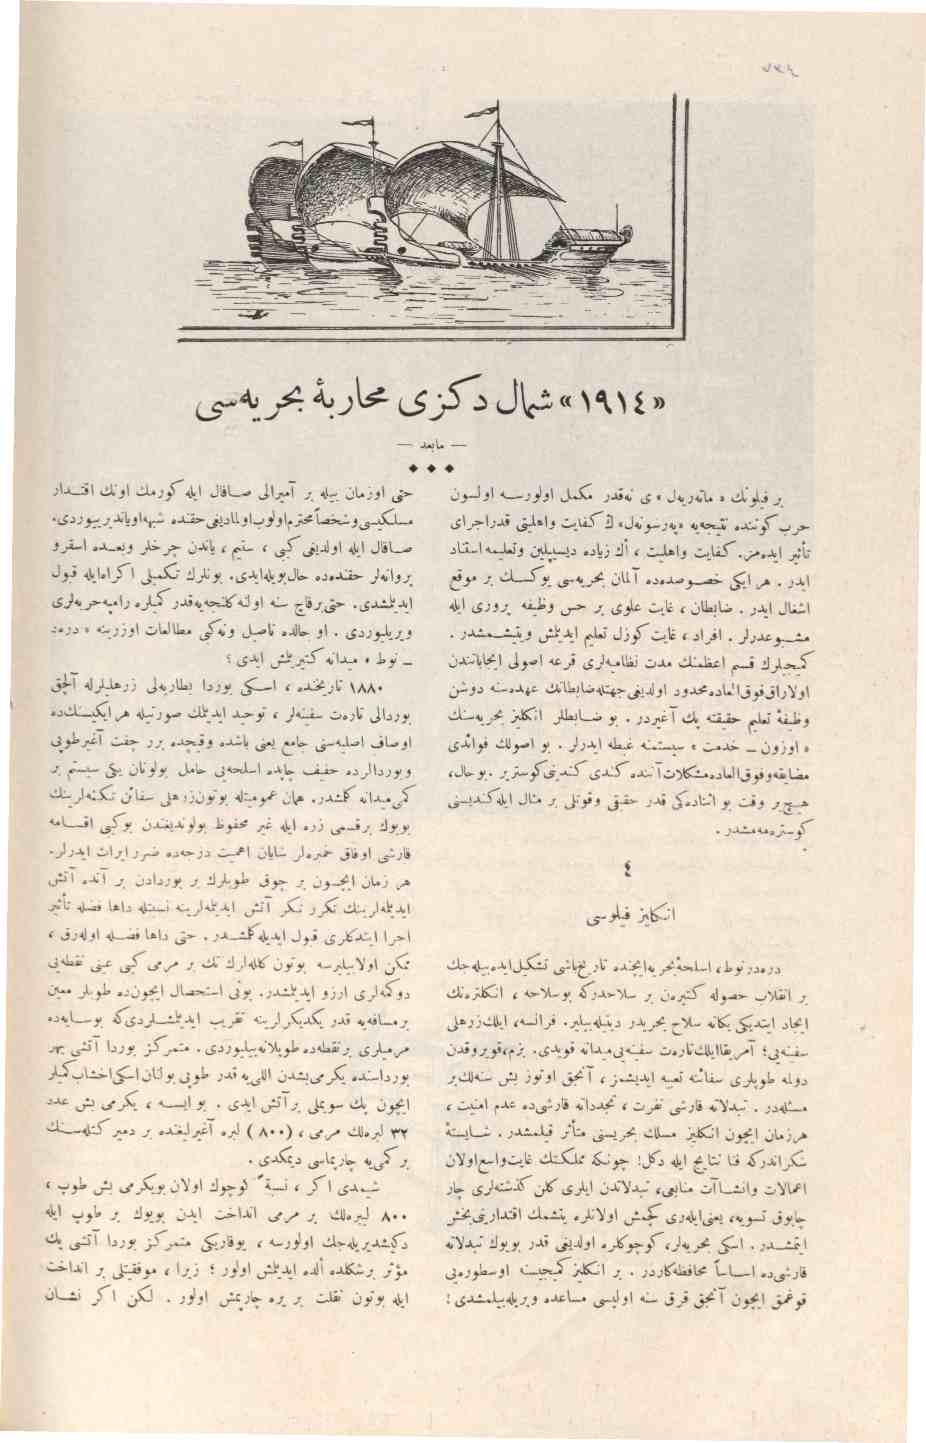 «١٩١٤» شمال دكزی محاربهٔ بحریه‌سی
— مابعد —
بر فیلونك « ماته‌ریه‌ل » ی نه‌قدر مكمل اولورسه اولسون
حرب كوننده نتیجه‌یه «په‌رسونه‌ل» ك كفایت واهلیتی قدراجرای
تأثیر ایده‌مز. كفایت واهلیت ، أك زیاده دیسیپلین وتعلیمه استناد
ایدر . هر ایكی خصوصده‌ده آلمان بحریه‌سی یوكسك بر موقع
اشغال ایدر . ضابطان ، غایت علوی بر حس وظیفه پروری ایله
مشبوعدرلر . افراد ، غایت كوزل تعلیم ایدیلمش ویتیشمشدر .
كمیجیلرك قسم اعظمنك مدت نظامیه‌لری قرعه اصولی ایجاباتندن
اولارق فوق‌العاده محدود اولدیغی جهتله ضابطانك عهده‌سنه دوشن
وظیفهٔ تعلیم حقیقته پك آغیردر . بو ضابطلر انكلیز بحریه‌سنك
« اوزون — خدمت » سیستمنه غبطه ایدرلر . بو اصولك فوائدی
مضایقه وفوق‌العاده مشكلات آننده كندی كندینی كوستریر . بو حال،
هیچ بر وقت بو اثناده‌كی قدر حقیقی وقوتلی بر مثال ایله كندیسنی
كوستره‌مه‌مشدر .
٤
انكلیز فیلوسی
دره‌درنوط ، اسلحهٔ بحریه ایچنده تاریخ‌باشی تشكیل ایده‌بیله‌جك
بر انقلاب حصوله كتیره‌ن بر سلاحدركه بو سلاحه ، انكلتره‌نك
ایجاد ایتدیكی یكانه سلاح بحریدر دینیله‌بیلیر. فرانسه، ایلك زرهلی
سفینه‌یی؛ آمریقا ایلك تاره‌ت سفینه‌یی میدانه قویدی. بزم، قویروقدن
دولمه طوپلری سفائنه تعبیه ایدیشمز ، آنجق اوتوز بش سنه‌لك بر
مسئله‌در . تبدلاته قارشی نفرت ، تجدداته قارشی‌ده عدم امنیت ،
هر زمان ایچون انكلیز مسلك بحریسنی متأثر قیلمشدر. شایستهٔ
شكراندركه فنا نتایج ایله دكل! چونكه مملكتك غایت واسع اولان
اعمالات وانشاآت منابعی، تبدلاتدن ایلری كلن كذشته‌لری چار
چابوق تسویه، یعنی ایله‌ری كچمش اولانلره یتشمك اقتدارینی بخش
ایتمشدر. اسكی بحریه‌لر، كوچوكلره اولدیغی قدر بویوك تبدلاته
قارشی‌ده اساساً محافظه‌كاردر . بر انكلیز كمیجیسنه اوسطوره‌یی
قوغمق ایچون آنجق قرق سنه اولیسی مساعده ویریله‌بیلمشدی !
حتی اوزمان بیله بر آمیرالی صاقال ایله كورمك اونك اقتدار
مسلكیسی وشخصاً محترم اولوب اولمادیغی حقنده شبهه اویاندیریییوردی.
صاقال ایله اولدیغی كبی ، ستیم ، یاندن چرخلر وبعده اسقرو
پروانه‌لر حقنده‌ده حال بویله ایدی. بونلرك تكمیلی اكراه ایله قبول
ایدیلمشدی. حتی برقاچ سنه اولنه كلنجه‌یه‌قدر كمیلره رامپه حربه‌لری
ویریلیوردی . او حالده ناصیل ونه‌كی مطالعات اوزرینه « دره‌د
— نوط » میدانه كتیریلمش ایدی ؟
١٨٨٠ تاریخنده ، اسكی بوردا بطاریه‌لی زرهلیلرله آلچق
بوردالی تاره‌ت سفینه‌لر ، توحید ایدیلمك صورتیله هر ایكیسنك‌ده
اوصاف اصلیه‌سنی جامع یعنی باشده وقیچده برر چفت آغیرطوپی
وبوردالرده خفیف چاپده اسلحه‌یی حامل بولونان یكی سیستم بر
كمی میدانه كلمشدر. همان عمومیتله بوتون زرهلی سفائن تكنه‌لرینك
بویوك برقسمی زره ایله غیر محفوظ بولوندیغندن بوكبی اقسامه
قارشی اوفاق خمبره‌لر شایان اهمیت درجه‌ده ضرر ایراث ایدرلر.
هر زمان ایچون بر چوق طوپلرك بر بوردادن بر آنده آتش
ایدیلمه‌لرینك تكرر تكرر آتش ایدیلمه‌لرینه نسبتله داها فضله تأثیر
اجرا ایتدكلری قبول ایدیله‌كلمشدر . حتی داها فضله اوله‌رق ،
ممكن اولابیلیرسه بوتون كلله‌لرك تك بر مرمی كبی عینی نقطه‌یی
دوكمه‌لری آرزو ایدیلمشدر. بونی استحصال ایچون‌ده طوپلر معین
بر مسافه‌یه قدر یكدیكرلرینه تقریب ایدیلمشلردی كه بوسایه‌ده
مرمیلری بر نقطه‌ده طوپلانه‌بیلیوردی. متمركز بوردا آتشی بهر
بورداسنده یكرمی بشدن اللی‌یه قدر طوپی بولنان اسكی اخشاب كمیلر
ایچون پك سویملی بر آتش ایدی . بو ایسه ، یكرمی بش عدد
٣٢ لیره‌لك مرمی ، ( ٨٠٠ ) لیره آغیرلیغنده بر دمیر كتله‌سنك
بر كمی‌یه چارپماسی دیمكدی .
شیمدی اكر ، نسبةً كوچوك اولان بو یكرمی بش طوپ ،
٨٠٠ لیبره‌لك بر مرمی انداخت ایدن بویوك بر طوپ ایله
دكیشدیریله‌جك اولورسه ، یوقاریكی متمركز بوردا آتشی پك
مؤثر بر شكلده ألده ایدیلمش اولور ؛ زیرا ، موفقیتلی بر انداخت
ایله بوتون ثقلت بر یره چارپمش اولور . لكن اكر نشان